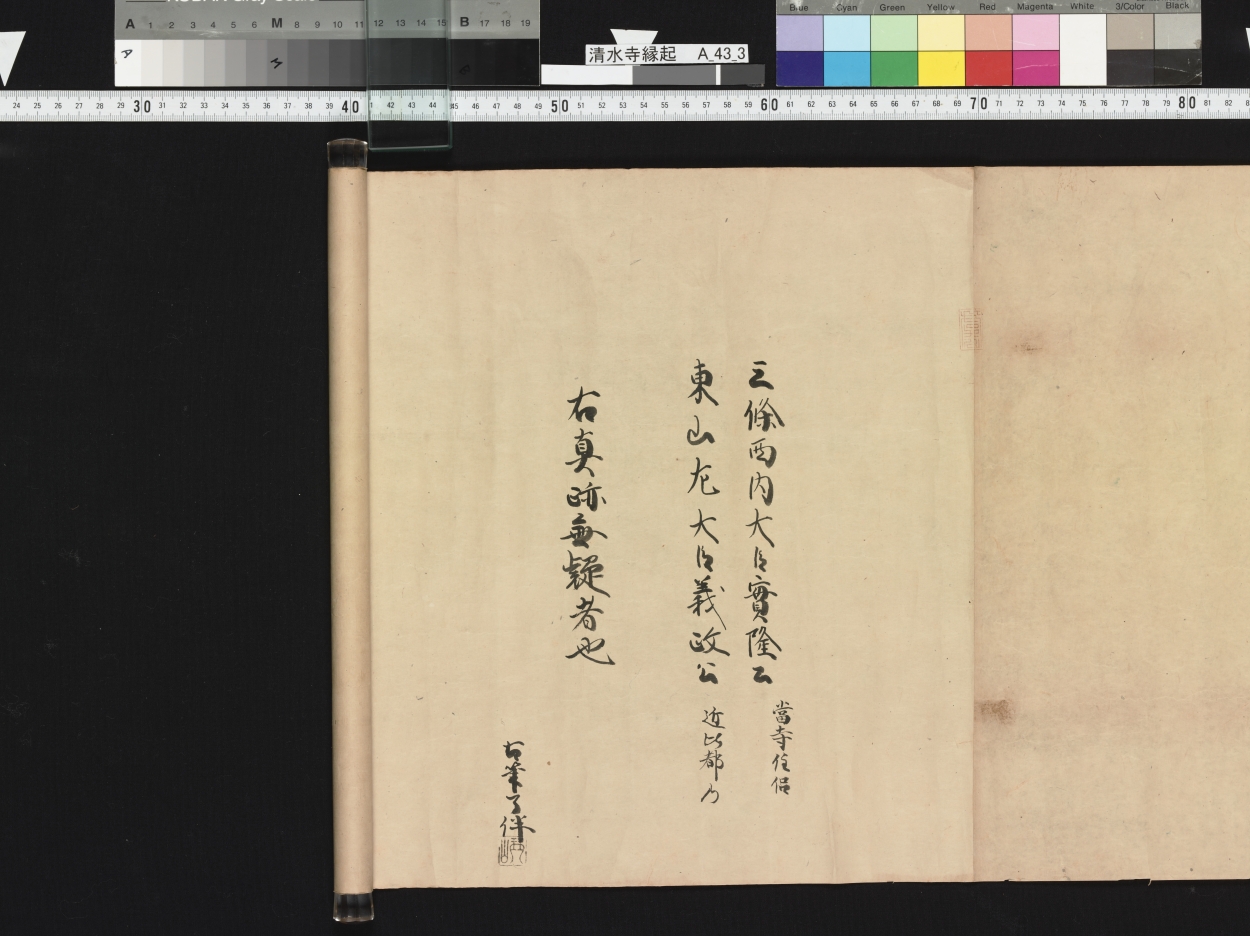 KODAK Gray Scale
A 1 2 3 4 5 6 M 8 9 10 11 12 13 14 15 B 17 18 19
A M B
清水寺縁起 A_43_3
Blue Cyan Green Yellow Red Magenta White 3/Color Black
24 25 26 27 28 29 30 31 32 33 34 35 36 37 38 39 40 41 42 43 44 45 46 47 48 49 50 51 52 53 54 55 56 57 58 59 60 61 62 63 64 65 66 67 68 69 70 71 72 73 74 75 76 77 78 79 80 81 82
三條西内大臣實隆公 當寺住侶
東山左大臣義政公 近比都乃
右真跡無疑者也
古筆了伴